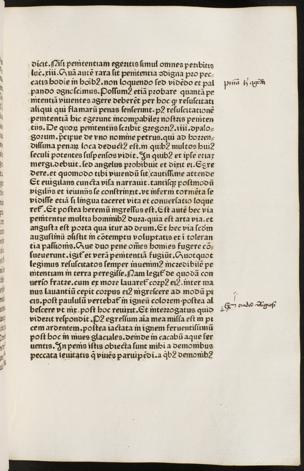 dicit. Nisi penitentiam egeritis simul omnes peribitis
luc. xiii. Quā autē rara sit penitentia ꝯdigna pro pec
catis hodie in hoibꝫ. non loquendo sed vidēdo et pal
pando agnoscimus. Possumꝰ etiā probare quantā pe
nitentiā viuentes agere deberēt per hoc ꝙ resuscitati
aliqui qui illarum penas senserunt.
penitentē hic egerunt incompabileꝫ nostris peniten
tiis. De quoꝝ penitentiis scribit gregoriꝰ. iiii. dyalo-
gorum. de viro nomine petrus. qui ad horren-
dissima penaꝝ loca deductꝰ est. in quibꝫ multos huiꝰ
seculi potentes suspensos vidit. In quibꝰ et ipse etiaꝫ
mergi debuit. sed angelus prohibuit et dixit ei. Egre
dere. et quomodo tibi viuendū sit cautissime attende
Et euigilans cuncta visa narrauit. tantisqꝫ postmodū
vigiliis et ieiuniis se constrinxit. vt infernī tormēta se
vidisse etiā si lingua taceret vita et conuersatio loque
ret͛. Et postea heremū ingressus est. Et autē hec via
penitentie multis hominibꝫ dura. quia est arta via. et
angusta est porta que itur ad deum. Et hec via scḋm
augustinū ꝯsistit in ꝯtemptu voluptatis et ī toleran
tia passionis. Que duo pene oēs homines fugere cō
sueuerunt. igit͛ et verā penitentiā fugiūt. Quotquot
legimus resuscitatos semper inuenimꝰ incredibilē pe
nitentiam in terra peregisse. Nam legit͛ de quodā con
uerso fratre. cum et more lauaret͛ corpꝰ eiꝰ. inter ma
nus lauantiū cepit corpus eiꝰ nigrescere ad modū pi
cis. post paululū vertebat͛ in igneū colorem. postea al
bescere vt nix. post hoc reuixit. Et interrogatus quid
viderit respondit. Pꝰ egressum aīa mea missa est in pi
cem ardentem. postea iactata in ignem feruentissimū
post hoc in niues glaciales. deinde in cacabū aque fer
uentis. In penis istis obiecta sunt mihi a demonibus
peccata iuuentutis q̄ viuēs paruipēdi. a qbꝫ demonibꝰ